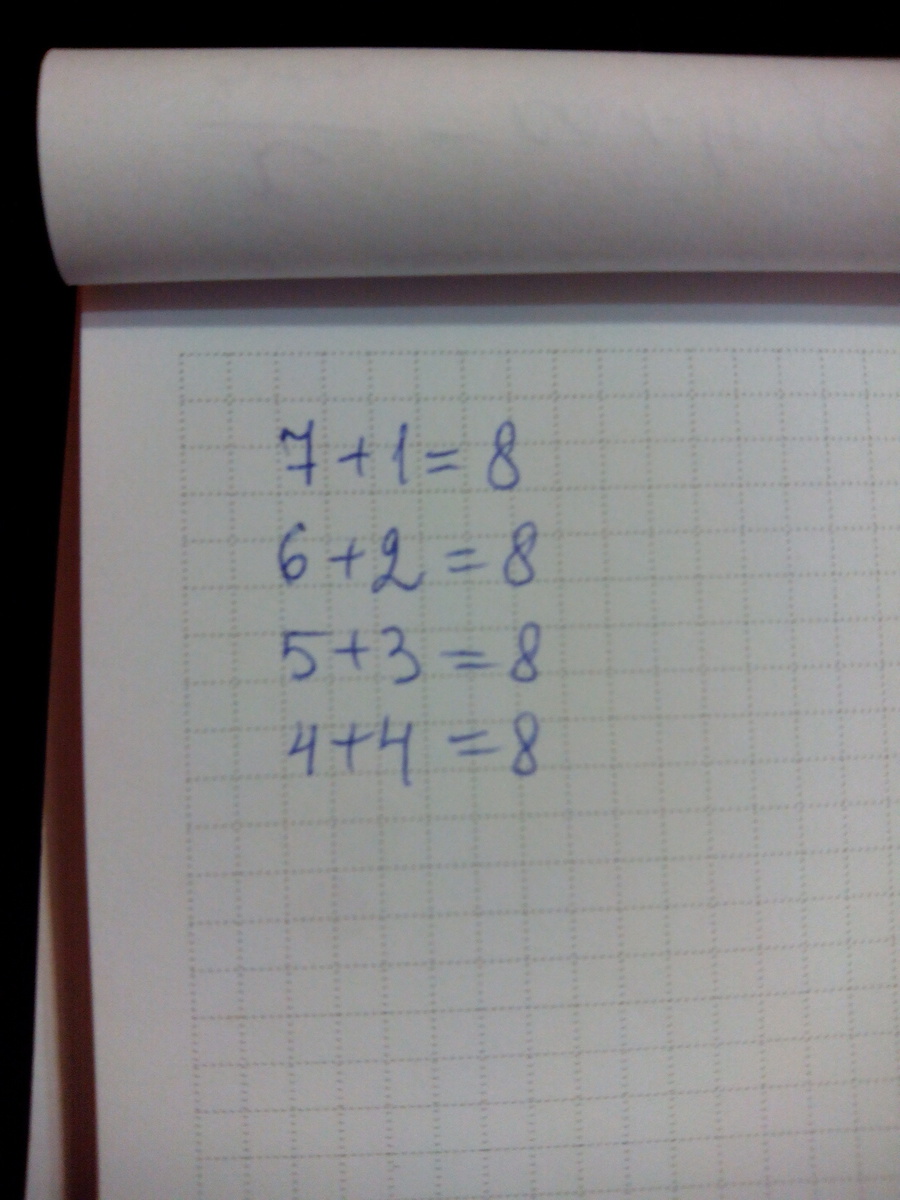 7+1=8
6+2=8
5+3=8
4+4=8